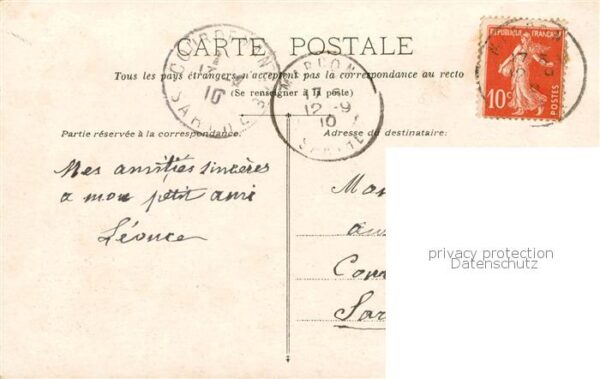 CARTE POSTALE
Tous les pays étrangers n'acceptent pas la correspondance au recto
(Se renseigner à la poste)
Partie réservée à la correspondance.
Adresse du destinataire.
RÉPUBLIQUE FRANÇAISE
10c
POSTES
12-9
10
SARTHE
Mes amitiés sincères
a mon petit ami
Léonce
privacy protection
Datenschutz